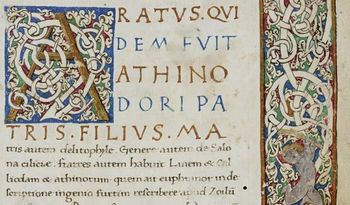 ARATVS. QVI
DEM FVIT
ATHINO
DORI PA
TRIS. FILIVS. MA
tris autem dehtophyle. Genere autem de Salo
na ciliciæ. fratres autem habuit Lanem & Cal
liodam & athinotum. quem ait euphranor inde
scriptione ingenio fuetam rescribere apud Zoilū